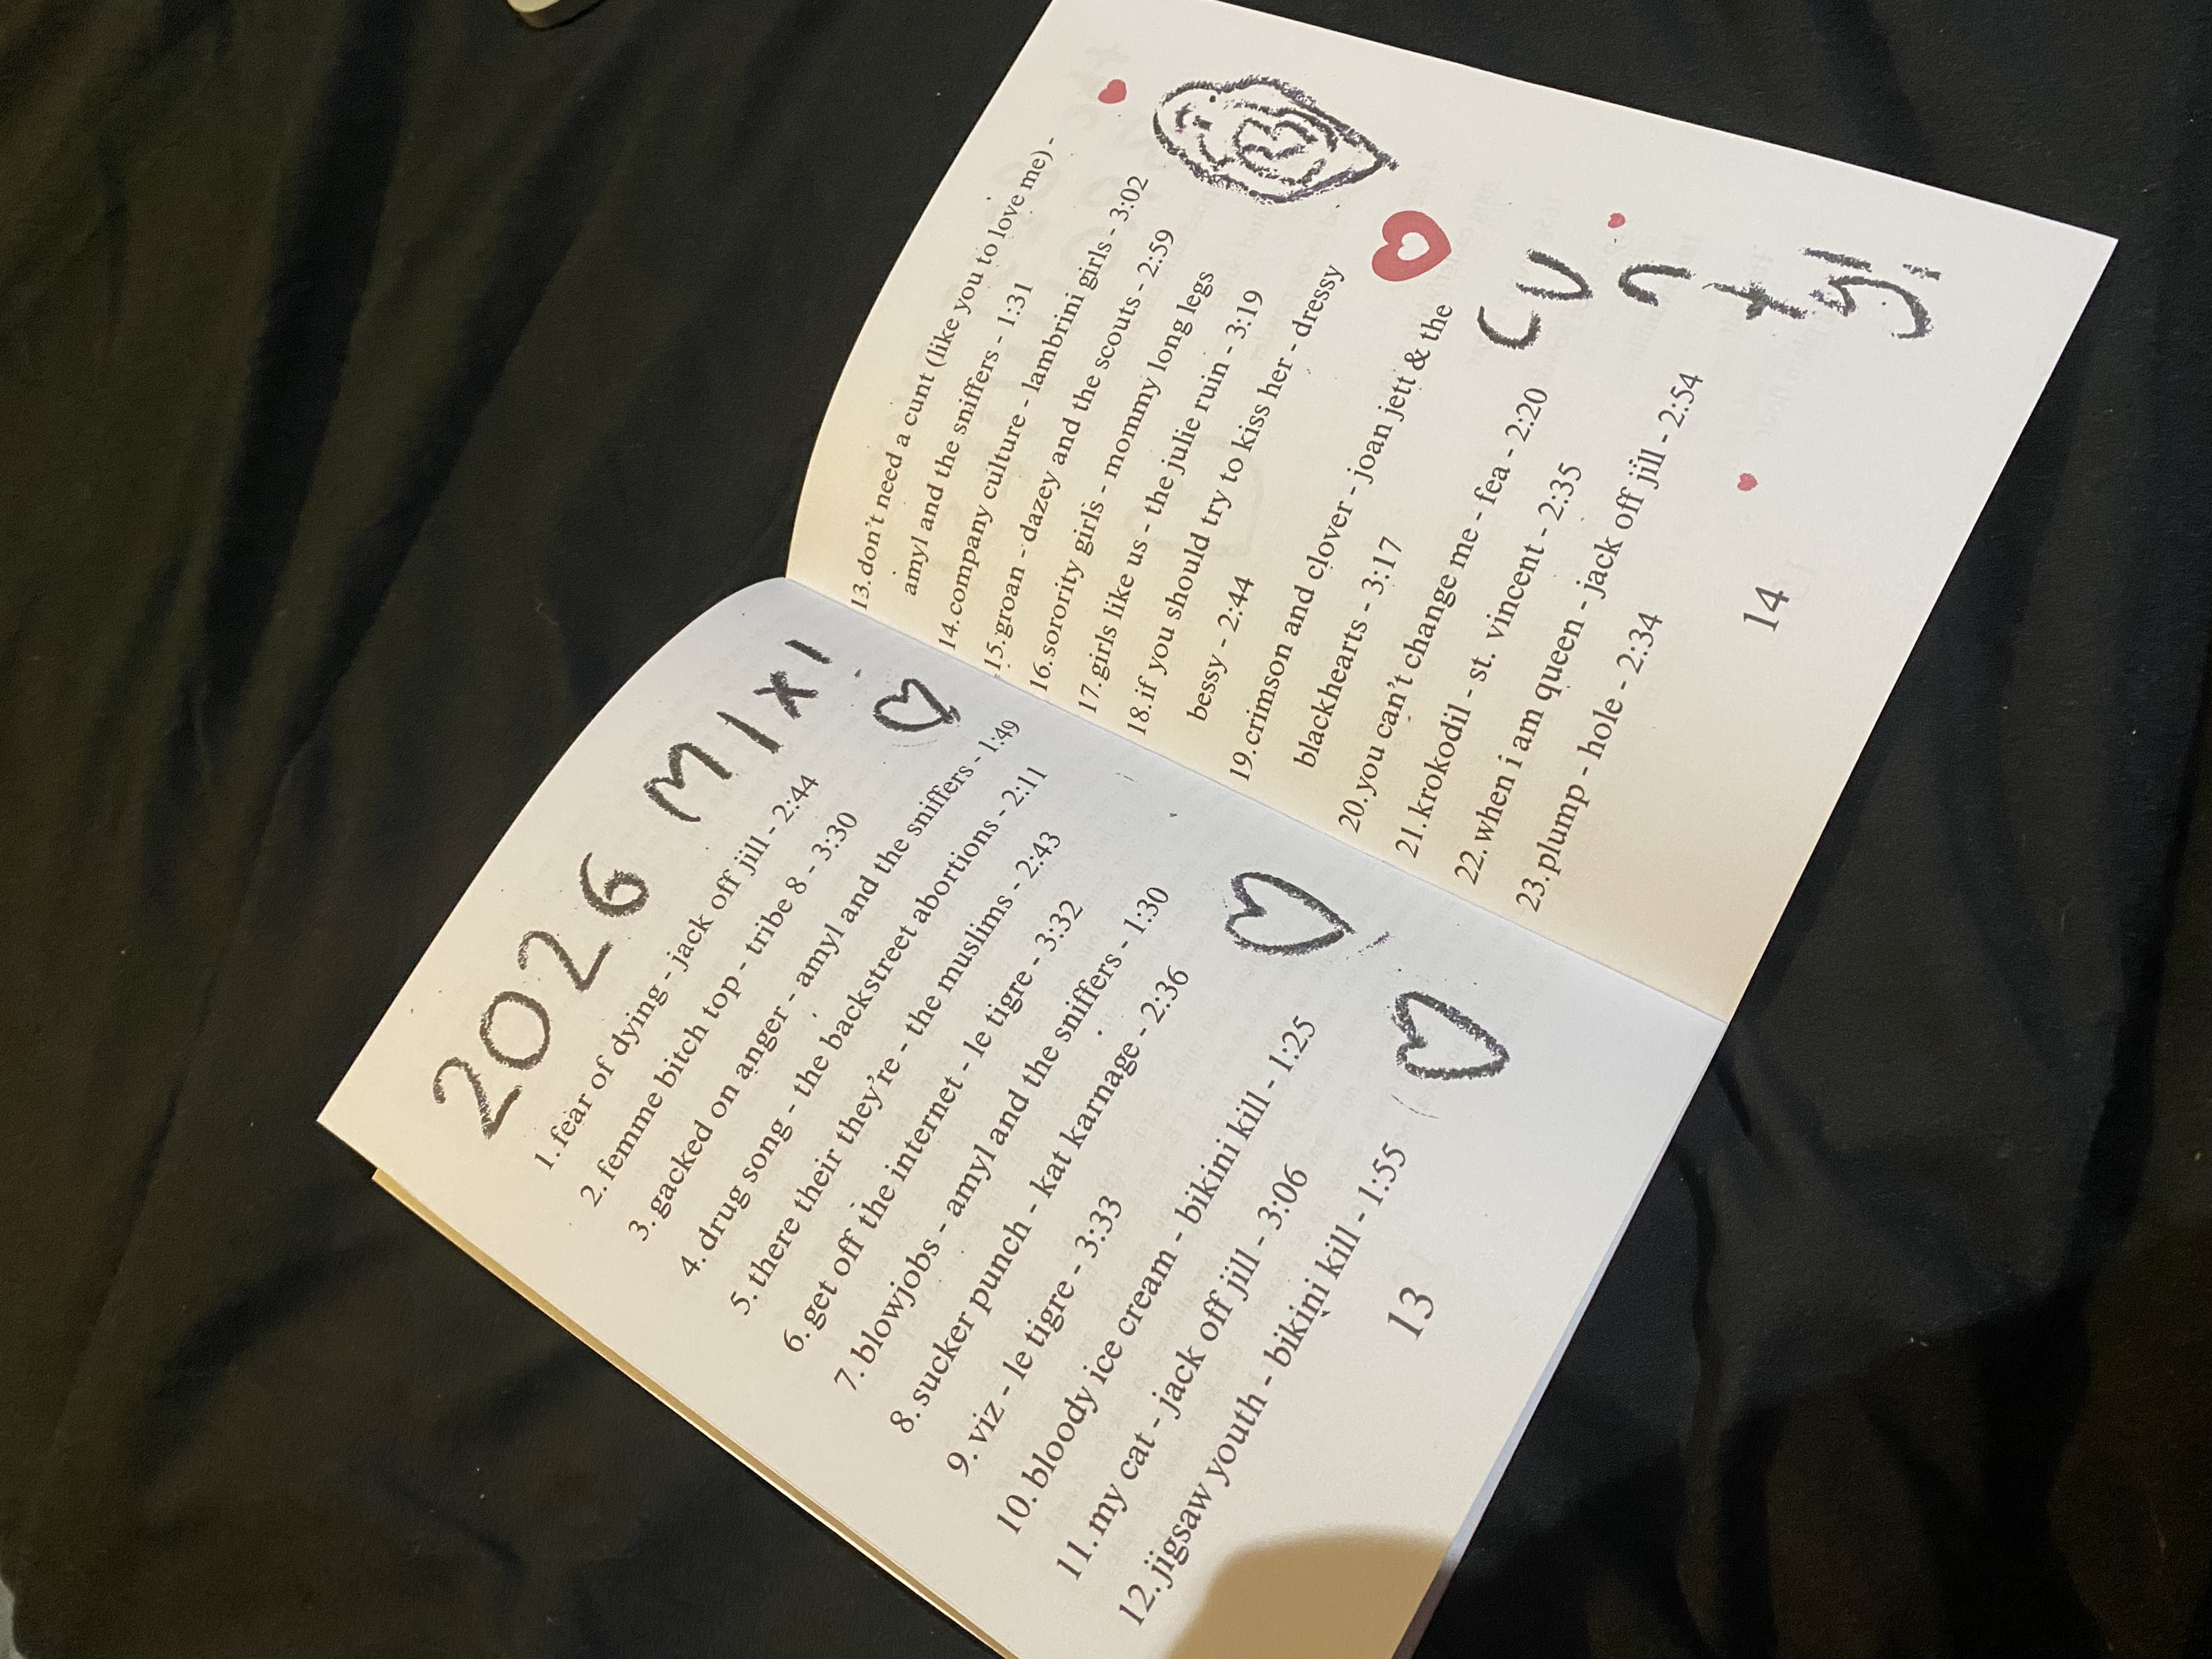 2026 MIX!
1. fear of dying - jack off jill - 2:44
2. femme bitch top - tribe 8 - 3:30
3. gacked on anger - amyl and the sniffers - 1:49
4. drug song - the backstreet abortions - 2:11
5. there their they're - the muslims - 2:43
6. get off the internet - le tigre - 3:32
7. blowjobs - amyl and the sniffers - 1:30
8. sucker punch - kat karnage - 2:36
9. viz - le tigre - 3:33
10. bloody ice cream - bikini kill - 1:25
11. my cat - jack off jill - 3:06
12. jigsaw youth - bikini kill - 1:55
13
13. don't need a cunt (like you to love me) -
amyl and the sniffers - 1:31
14. company culture - lambrini girls - 3:02
15. groan - dazey and the scouts - 2:59
16. sorority girls - mommy long legs
17. girls like us - the julie ruin - 3:19
18. if you should try to kiss her - dressy
bessy - 2:44
19. crimson and clover - joan jett & the
blackhearts - 3:17
20. you can't change me - fea - 2:20
21. krokodil - st. vincent - 2:35
22. when i am queen - jack off jill - 2:54
23. plump - hole - 2:34
cunty!
14